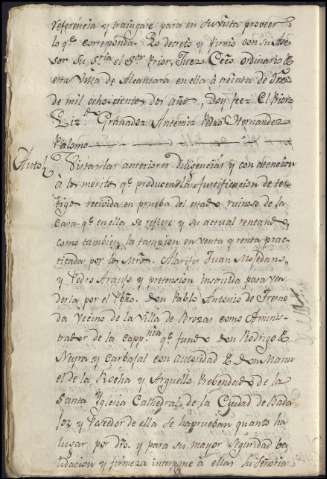 referencia y traigase para en su vista proveer
lo qe. corresponda. Lo decretò y firmò con su Ase-
sor Su Sria. el Sor. Prior, Juez Ecco. ordinario de
esta Villa de Alcantara en ella à treinta de
de mil ochocientos dos años, doy fee. El Prior
Liz.do Granados Antemi Pedro Hernandez
Palomo
Auto Vistas las anteriores diligencias y con atencion
à los meritos qe. producen, la justificacion de tes-
tigos recivida en prueba del estado ruinoso de la
Casa qe. en ella se refiere y su actual renta,
como tambien la tasacion en venta y renta prac-
ticada por los Mros. Juan
y Pedro Araujo y pretension incoada para ven-
derla, por el Pbro. don Pablo Antonio de
da Vecino de la Villa de Brozas como Adminis-
trador de la Capp.nia qe. fundò don Rodrigo de
Neyra y Carbajal con autoridad de don Manu-
el de la Rocha y Arguello Prebendado de la
Santa Iglesia Cathedral de la Ciudad de Bada-
joz y Poseedor de ella se aprueban quanto ha
lugar por dro. y para su mayor seguridad va-
lidacion y firmeza interpone à ellas Su Señoria